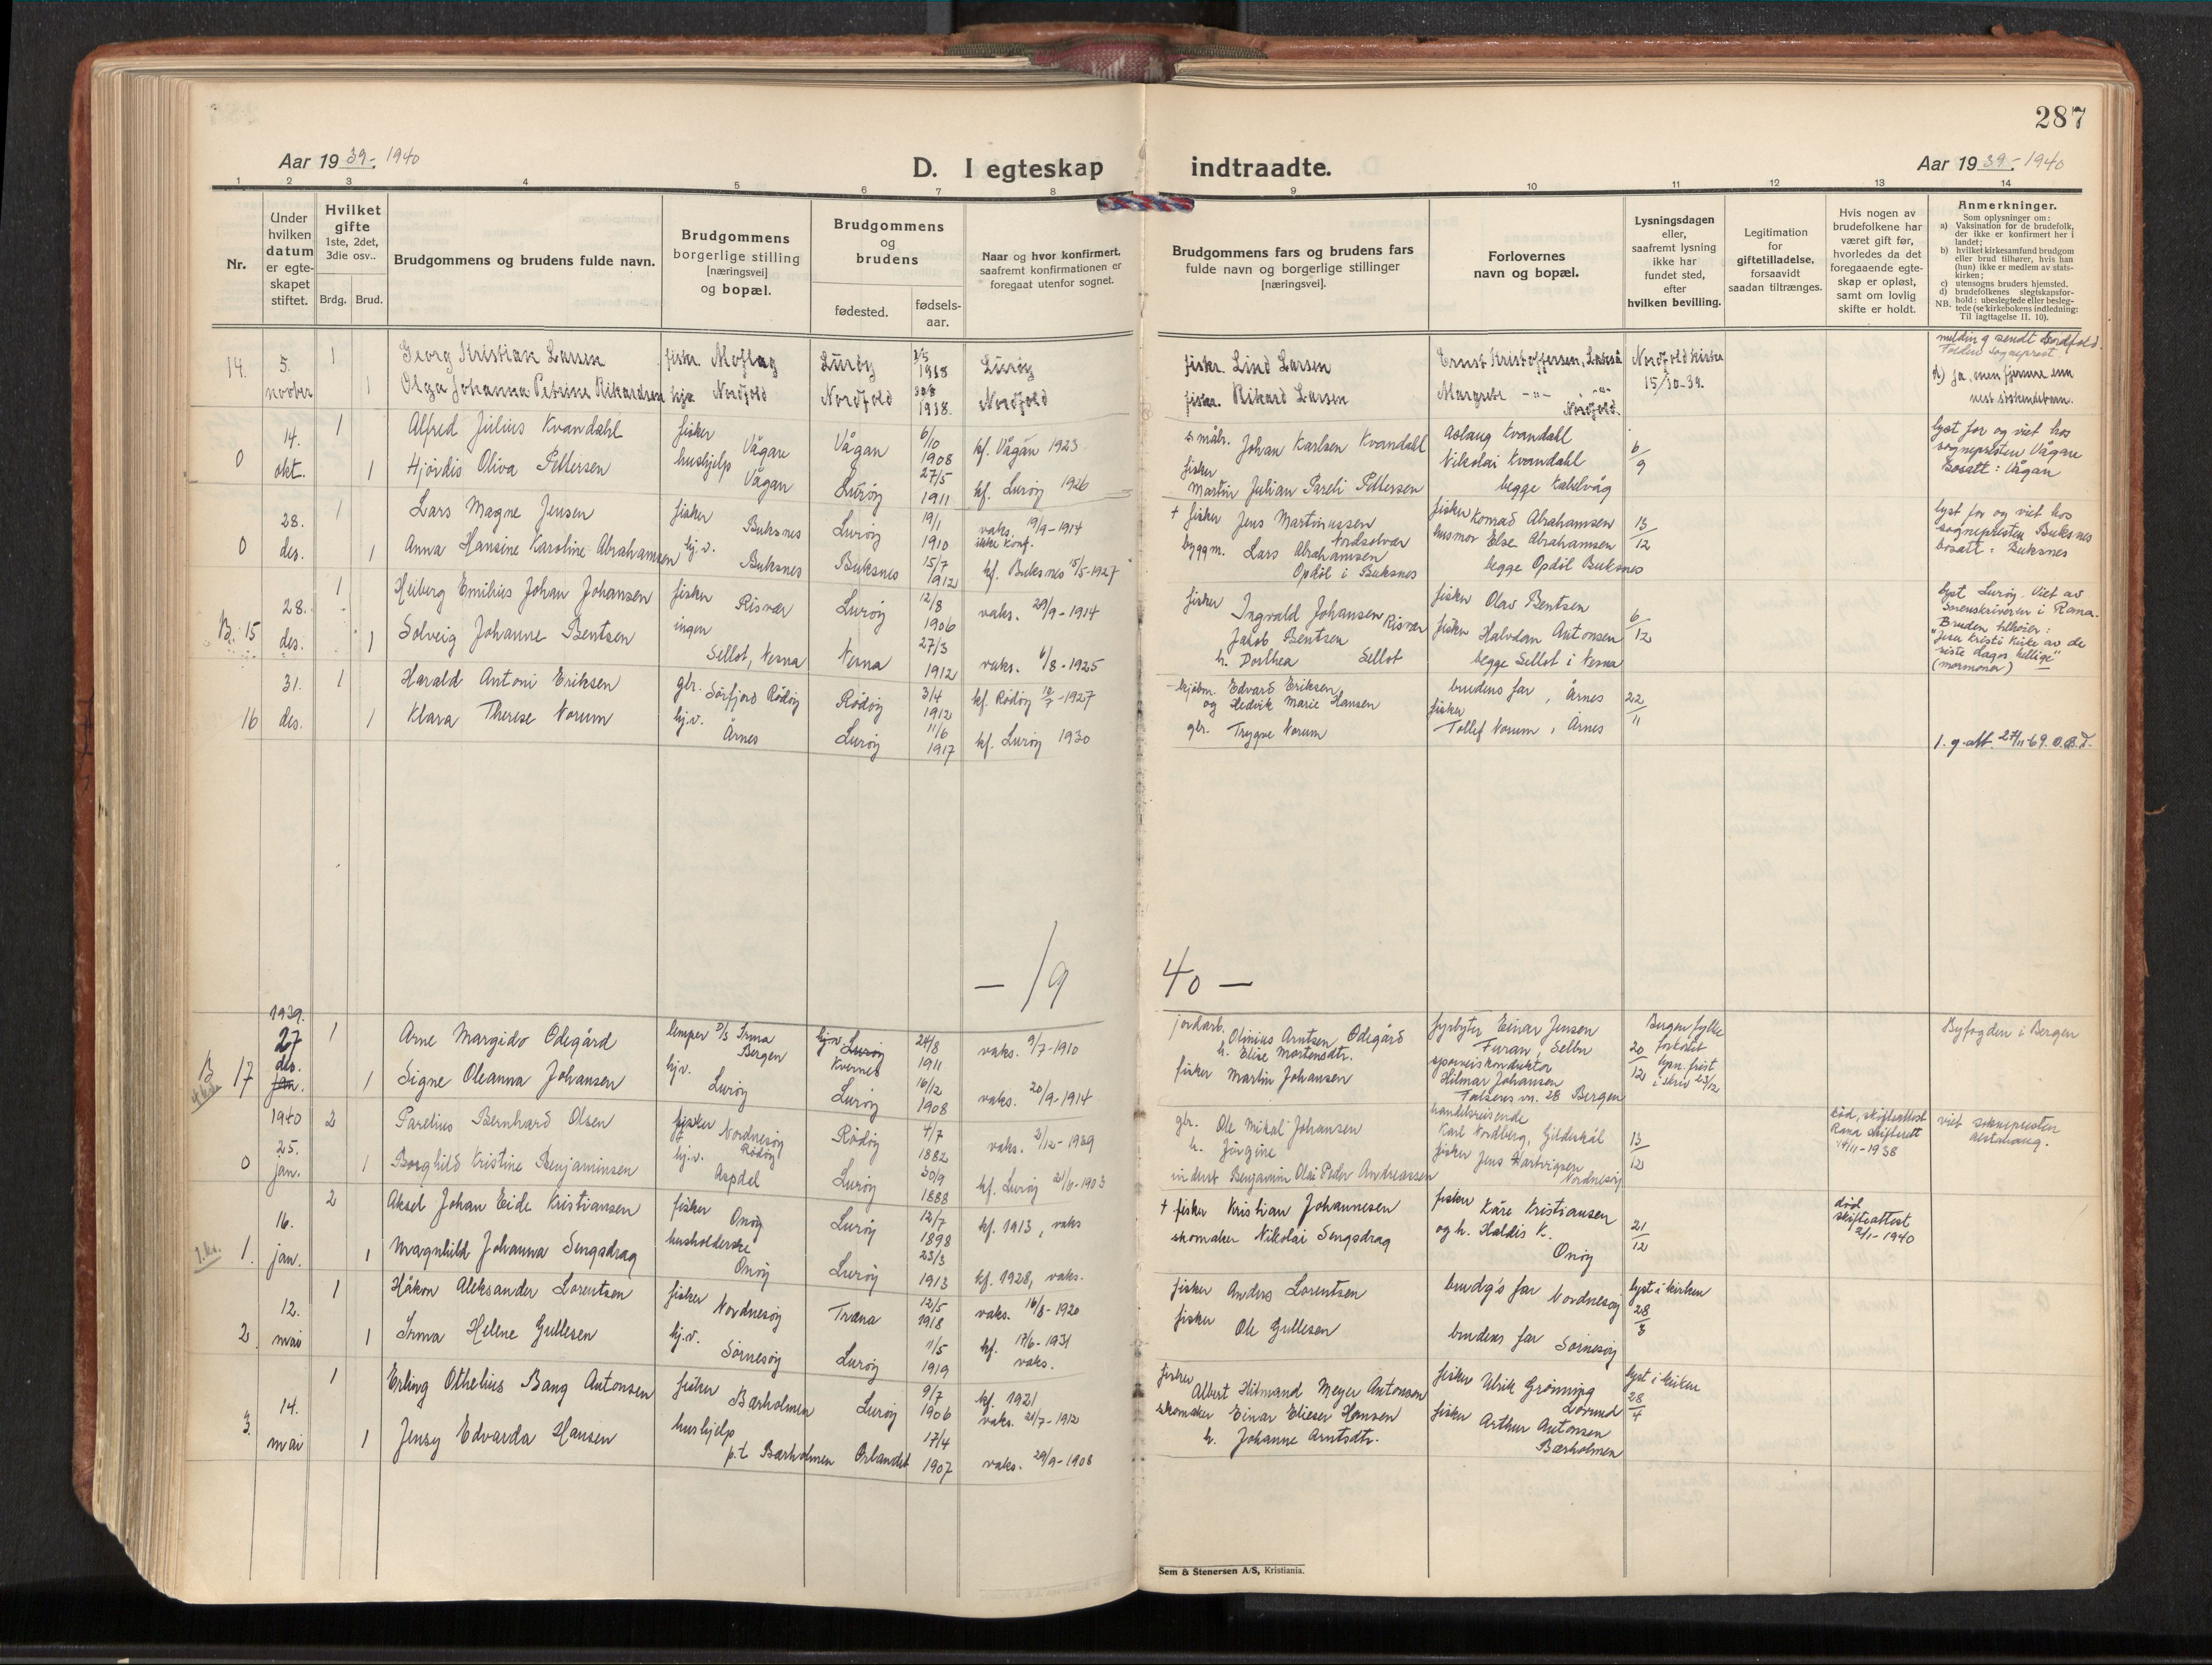 287
Aar 19 39 - 1940
D. I egteskap indtraadte.
Aar 19 39 - 1940
1 2 3 4 5 6 7 8 9 10 11 12 13 14
Nr.
Under hvilken datum er egteskapet stiftet.
Hvilket gifte 1ste, 2det, 3die osv..
Brdg. Brud.
Brudgommens og brudens fulde navn.
Brudgommens borgerlige stilling [næringsvei] og bopæl.
Brudgommens og brudens
fødested.
fødsels-aar.
Naar og hvor konfirmert, saafremt konfirmationen er foregaat utenfor sognet.
Brudgommens fars og brudens fars fulde navn og borgerlige stillinger [næringsvei].
Forlovernes navn og bopæl.
Lysningsdagen eller, saafremt lysning ikke har fundet sted, efter hvilken bevilling.
Legitimation for giftetilladelse, forsaavidt saadan tiltrænges.
Hvis nogen av brudefolkene har været gift før, hvorledes da det foregaaende egteskap er opløst, samt om lovlig skifte er holdt.
Anmerkninger.
Som oplysninger om:
a) Vaksination for de brudefolk, der ikke er konfirmert her i landet;
b) hvilket kirkesamfund brudgom eller brud tilhører, hvis han (hun) ikke er medlem av statskirken;
c) utensogns bruders hjemsted.
d) brudefolkenes slegtskapsforhold: ubeslegtede eller beslegtede (se kirkebokens indledning:
NB. Til iagttagelse II. 10).
14. 5. novber 1 Georg Kristian Larsen fiskr. Moflag Lurøy 1918 Lurøy fiskr. Lind Larsen Ernst Kristoffersen, Nordfold kirke melding sendt Nordfold
1 Olga Johanna Petrine Rikardsen hjv Nordfold Nordfold 30/8 1918. Nordfold fiskr. Rikard Larsen Margrete -"- Nordfold. 15/10-39. d) Ja, men fjernere enn nest søskendebarn.
0 14. okt. 1 Alfred Julius Kvandahl fisker Vågan Vågan 6/10 1908 kf. Vågan 1923 småbr. Johan Karlsen Kvandahl Aslaug Kvandahl 6/9 lyst for og viet hos sognepresten Vågan
1 Hjørdis Oliva Pettersen hushjelp Vågan Lurøy 27/5 1911 kf. Lurøy 1926 fisker Martin Julian Pareli Pettersen Nikolai Kvandahl begge Kabelvåg Bosatt: Vågan
0 28. des. 1 Lars Magne Jensen fisker Buksnes Lurøy 19/1 1910 vaks. 19/9-1914 ikke konf. + fisker Jens Martinussen Nordsolvær fisker Konrad Abrahamsen 13/12 lyst for og viet hos sognepresten Buksnes
1 Anna Hansine Karoline Abrahamsen hj.v. Buksnes Buksnes 15/7 1912 kf. Buksnes 15/5-1927 byggm. Lars Abrahamsen Opdøl i Buksnes husmor Else Abrahamsen begge Opdøl Buksnes bosatt: Buksnes
B. 15 28. des. 1 Heiberg Emilius Johan Johansen fisker Risvær Lurøy 12/8 1906 vaks. 29/9-1914 fisker Ingvald Johansen Risvær fisker Olav Bentsen 6/12 lyst Lurøy. Viet av Sorenskriveren i Rana.
1 Solveig Johanne Bentsen ingen Sellot, Nesna Nesna 27/3 1912 vaks. 6/8-1925 Jakob Bentsen h. Dorthea Sellot fisker Halvdan Antonsen begge Sellot i Nesna Bruden tilhører: "Jesu Kristi Kirke av de siste dagers hellige" (mormoner)
16 31. des. 1 Harald Antoni Eriksen gbr. Sørfjord Rødøy Rødøy 3/4 1912 kf. Rødøy 10/7-1927 kjøbm. Edvard Eriksen og Hedvik Marie Hansen brudens far, Årnes 22/11
1 Klara Therese Norum hj.v. Årnes Lurøy 11/6 1917 kf. Lurøy 1930 gbr. Trygve Norum fisker Tollef Norum, Årnes 1. g. att. 27/11-69. O.B.T.
— 19 40 —
B 17 1939. 27 des. jan. 1 Arne Margido Ødegård lemper D/S Irma Bergen hj.v. Lurøy Kvernes 24/8 1911 vaks. 9/7-1910 jordarb. Olinius Arntsen Ødegård h. Elise Mortensdtr. fyrbøter Einar Jensen Furan, Selbu Bergen fylke 20/12 forkortet lysn. frist i skriv 23/12 Byfogden i Bergen
1 Signe Oleanna Johansen hj.v. Lurøy Lurøy 16/12 1908 vaks. 20/9-1914 fisker Martin Johansen sporveiskonduktør Hilmar Johansen 28 Bergen
0 1940 25. jan. 2 Parelius Bernhard Olsen fisker Nordnesøy Rødøy Rødøy 4/7 1882 vaks. 2/12-1939 gbr. Ole Mikal Johansen h. Jørgine handelsreisende Karl Nordberg, Gildeskål 13/12 død, skifteattest Rana skifterett 14/11-1938 viet soknepresten Alstahaug.
1 Borghild Kristine Benjaminsen hj.v. Aspdal Lurøy 30/9 1888 kf. Lurøy 21/6-1903 inderst Benjamin Olai Peder Andreassen fisker Jens Hartvigsen Nordnesøy
1. 16. jan. 2 Aksel Johan Eide Kristiansen fisker Onøy Lurøy 12/7 1898 kf. 1913, vaks + fisker Kristian Johannesen fisker Kåre Kristiansen 21/12 død skifteattest 2/1-1940
1 Magnhild Johanna Sengsdrag husholderske Onøy Lurøy 23/3 1913 kf. 1928, vaks. skomaker Nikolai Sengsdrag og h. Haldis K. Onøy
2 12. mai 1 Håkon Aleksander Lorentsen fisker Nordnesøy Træna 12/5 1918 vaks. 16/8-1920 fisker Anders Lorentsen brudg's far Nordnesøy lyst i kirken 28/3
1 Irma Helene Gullesen hj.v. Sørnesøy Lurøy 1/5 1919 kf. 17/6-1931 vaks. fisker Ole Gullesen brudens far Sørnesøy
3. 14. mai 1 Erling Othelius Bang Antonsen fisker Bærholmen Lurøy 9/7 1906 kf. 1921 vaks. 21/7-1912 fisker Albert Hilmand Meyer Antonsen fisker Ulrik Grønning Lovund lyst i kirken 28/4
1 Jensy Edvarda Hansen hushjelp p.t. Bærholmen Ørlandet 17/4 1907 vaks. 29/9-1908 skomaker Einar Elieser Hansen h. Johanne Arntsdtr. fisker Arthur Antonsen Bærholmen
Sem & Stenersen A/S, Kristiania.